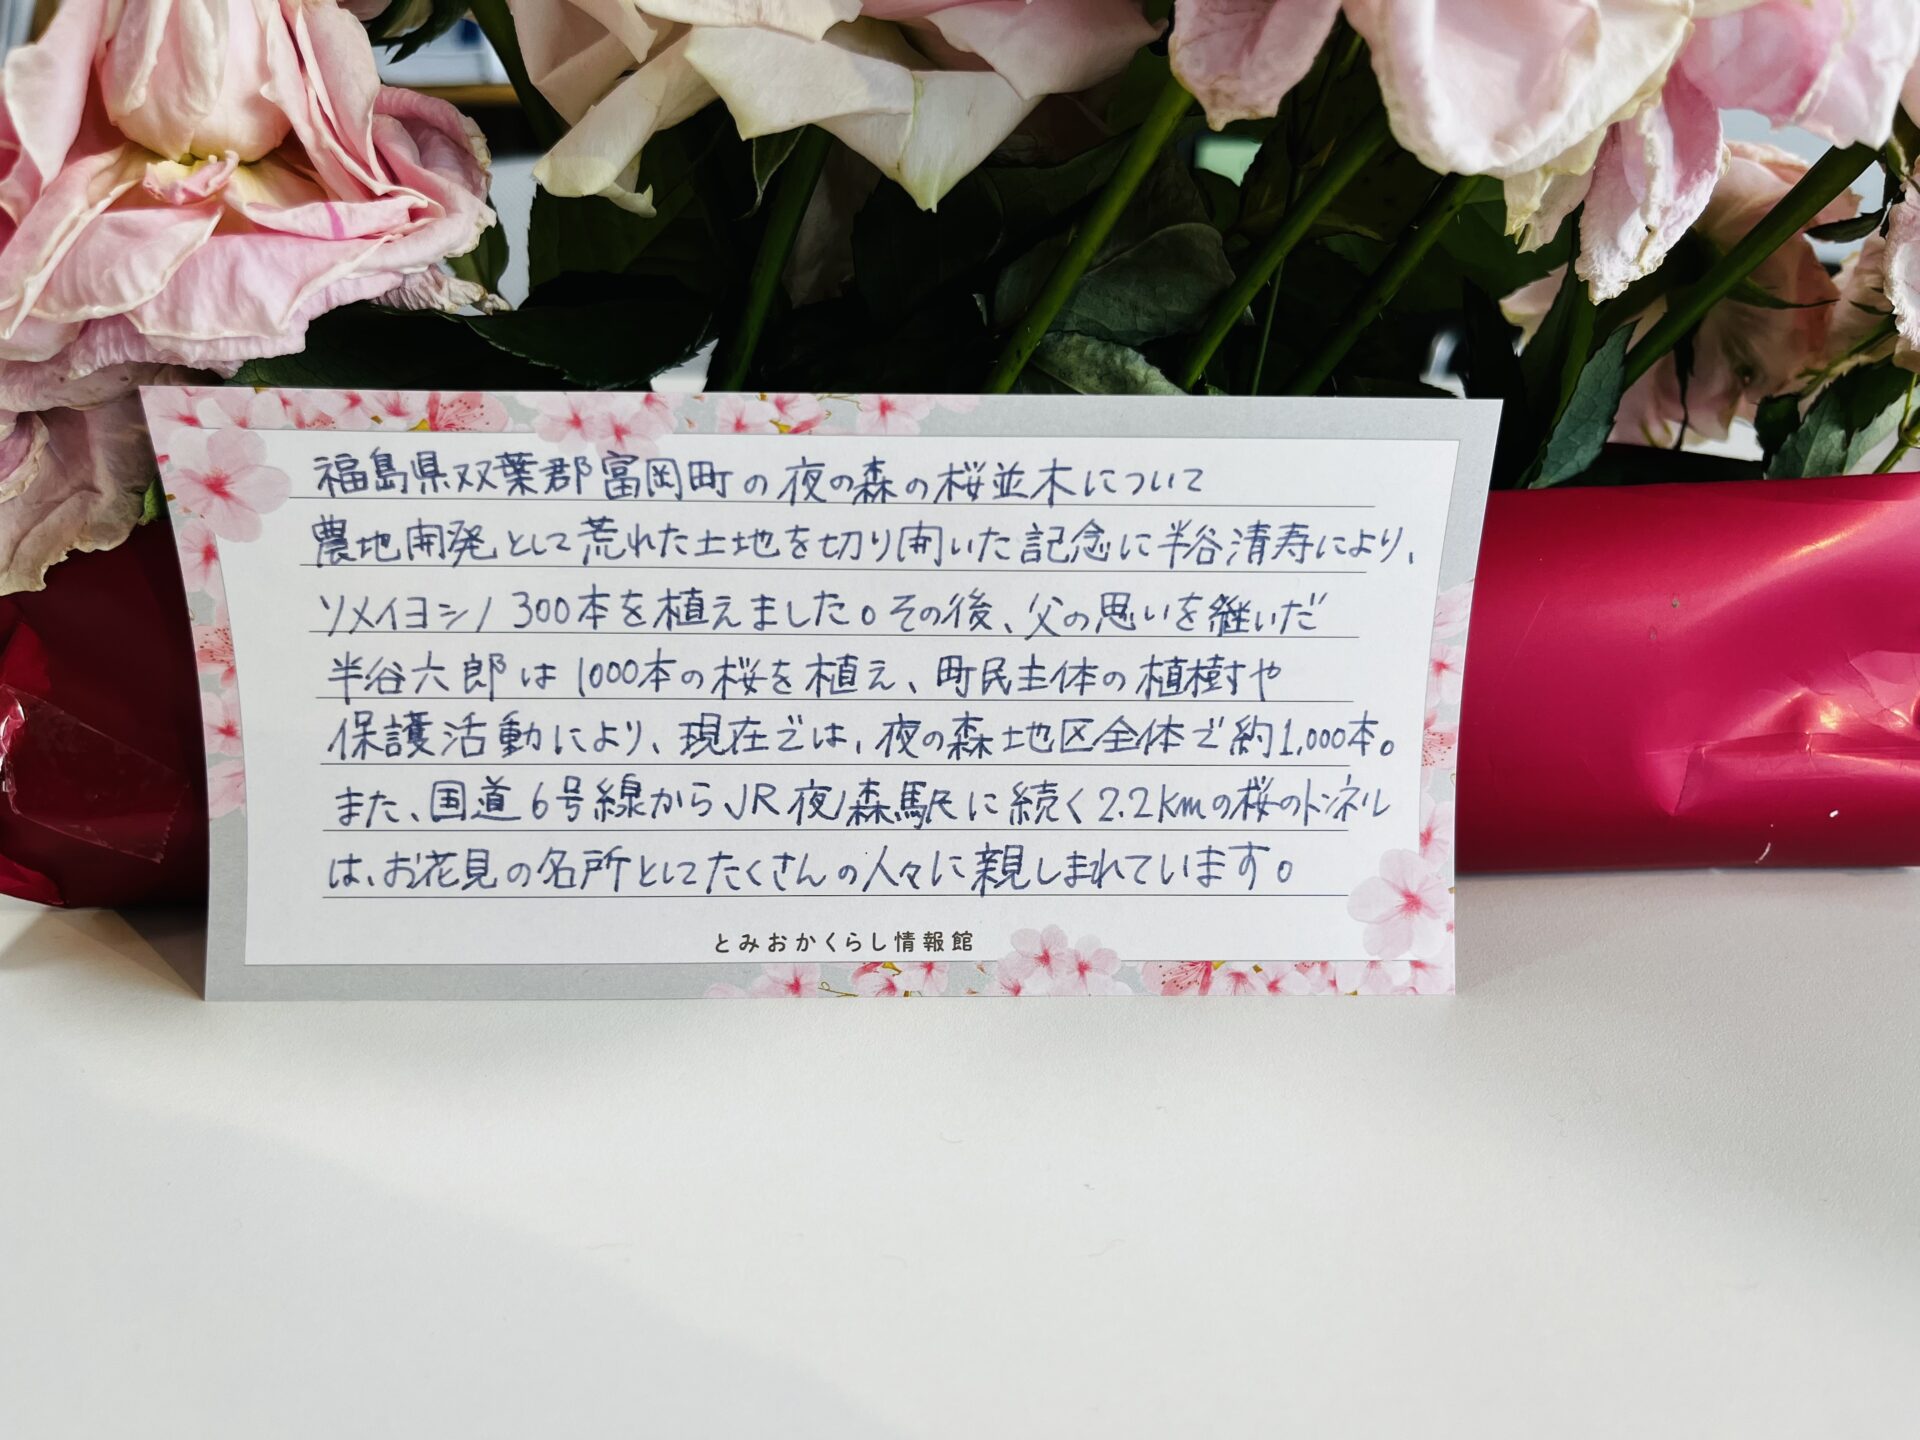 福島県双葉郡富岡町の夜の森の桜並木について
農地開発として荒れた土地を切り開いた記念に半谷清寿により、
ソメイヨシノ300本を植えました。その後、父の思いを継いだ
半谷六郎は1000本の桜を植え、町民主体の植樹や
保護活動により、現在では、夜の森地区全体で約1,000本。
また、国道6号線からJR夜ノ森駅に続く2.2kmの桜のトンネル
は、お花見の名所としてたくさんの人々に親しまれています。
とみおかくらし情報館